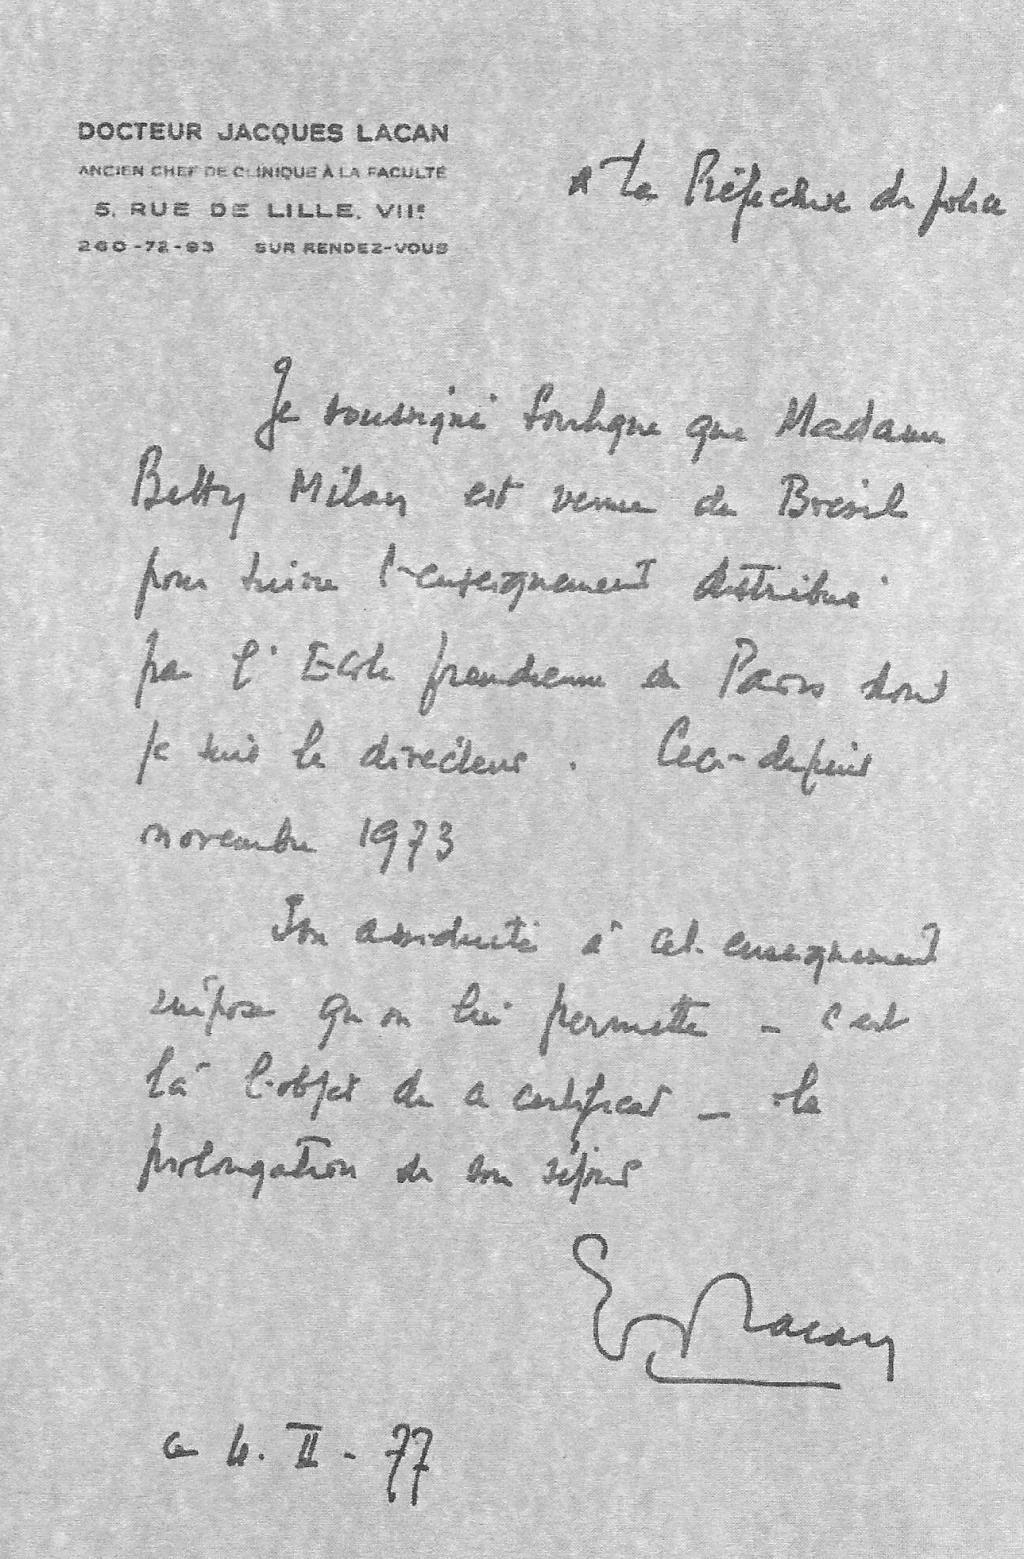 DOCTEUR JACQUES LACAN
ANCIEN CHEF DE CLINIQUE À LA FACULTÉ
5, RUE DE LILLE, VIIE
260-72-93 SUR RENDEZ-VOUS
A la Préfecture de police
Je soussigné souligne que Madame
Betty Milan est venue du Brésil
pour suivre l'enseignement distribué
par l'Ecole freudienne de Paris dont
je suis le directeur. Ceci depuis
novembre 1973
Son assiduité à cet enseignement
impose qu'on lui permette – c'est
là l'objet de ce certificat – la
prolongation de son séjour
Lacan
ce 4. II - 77